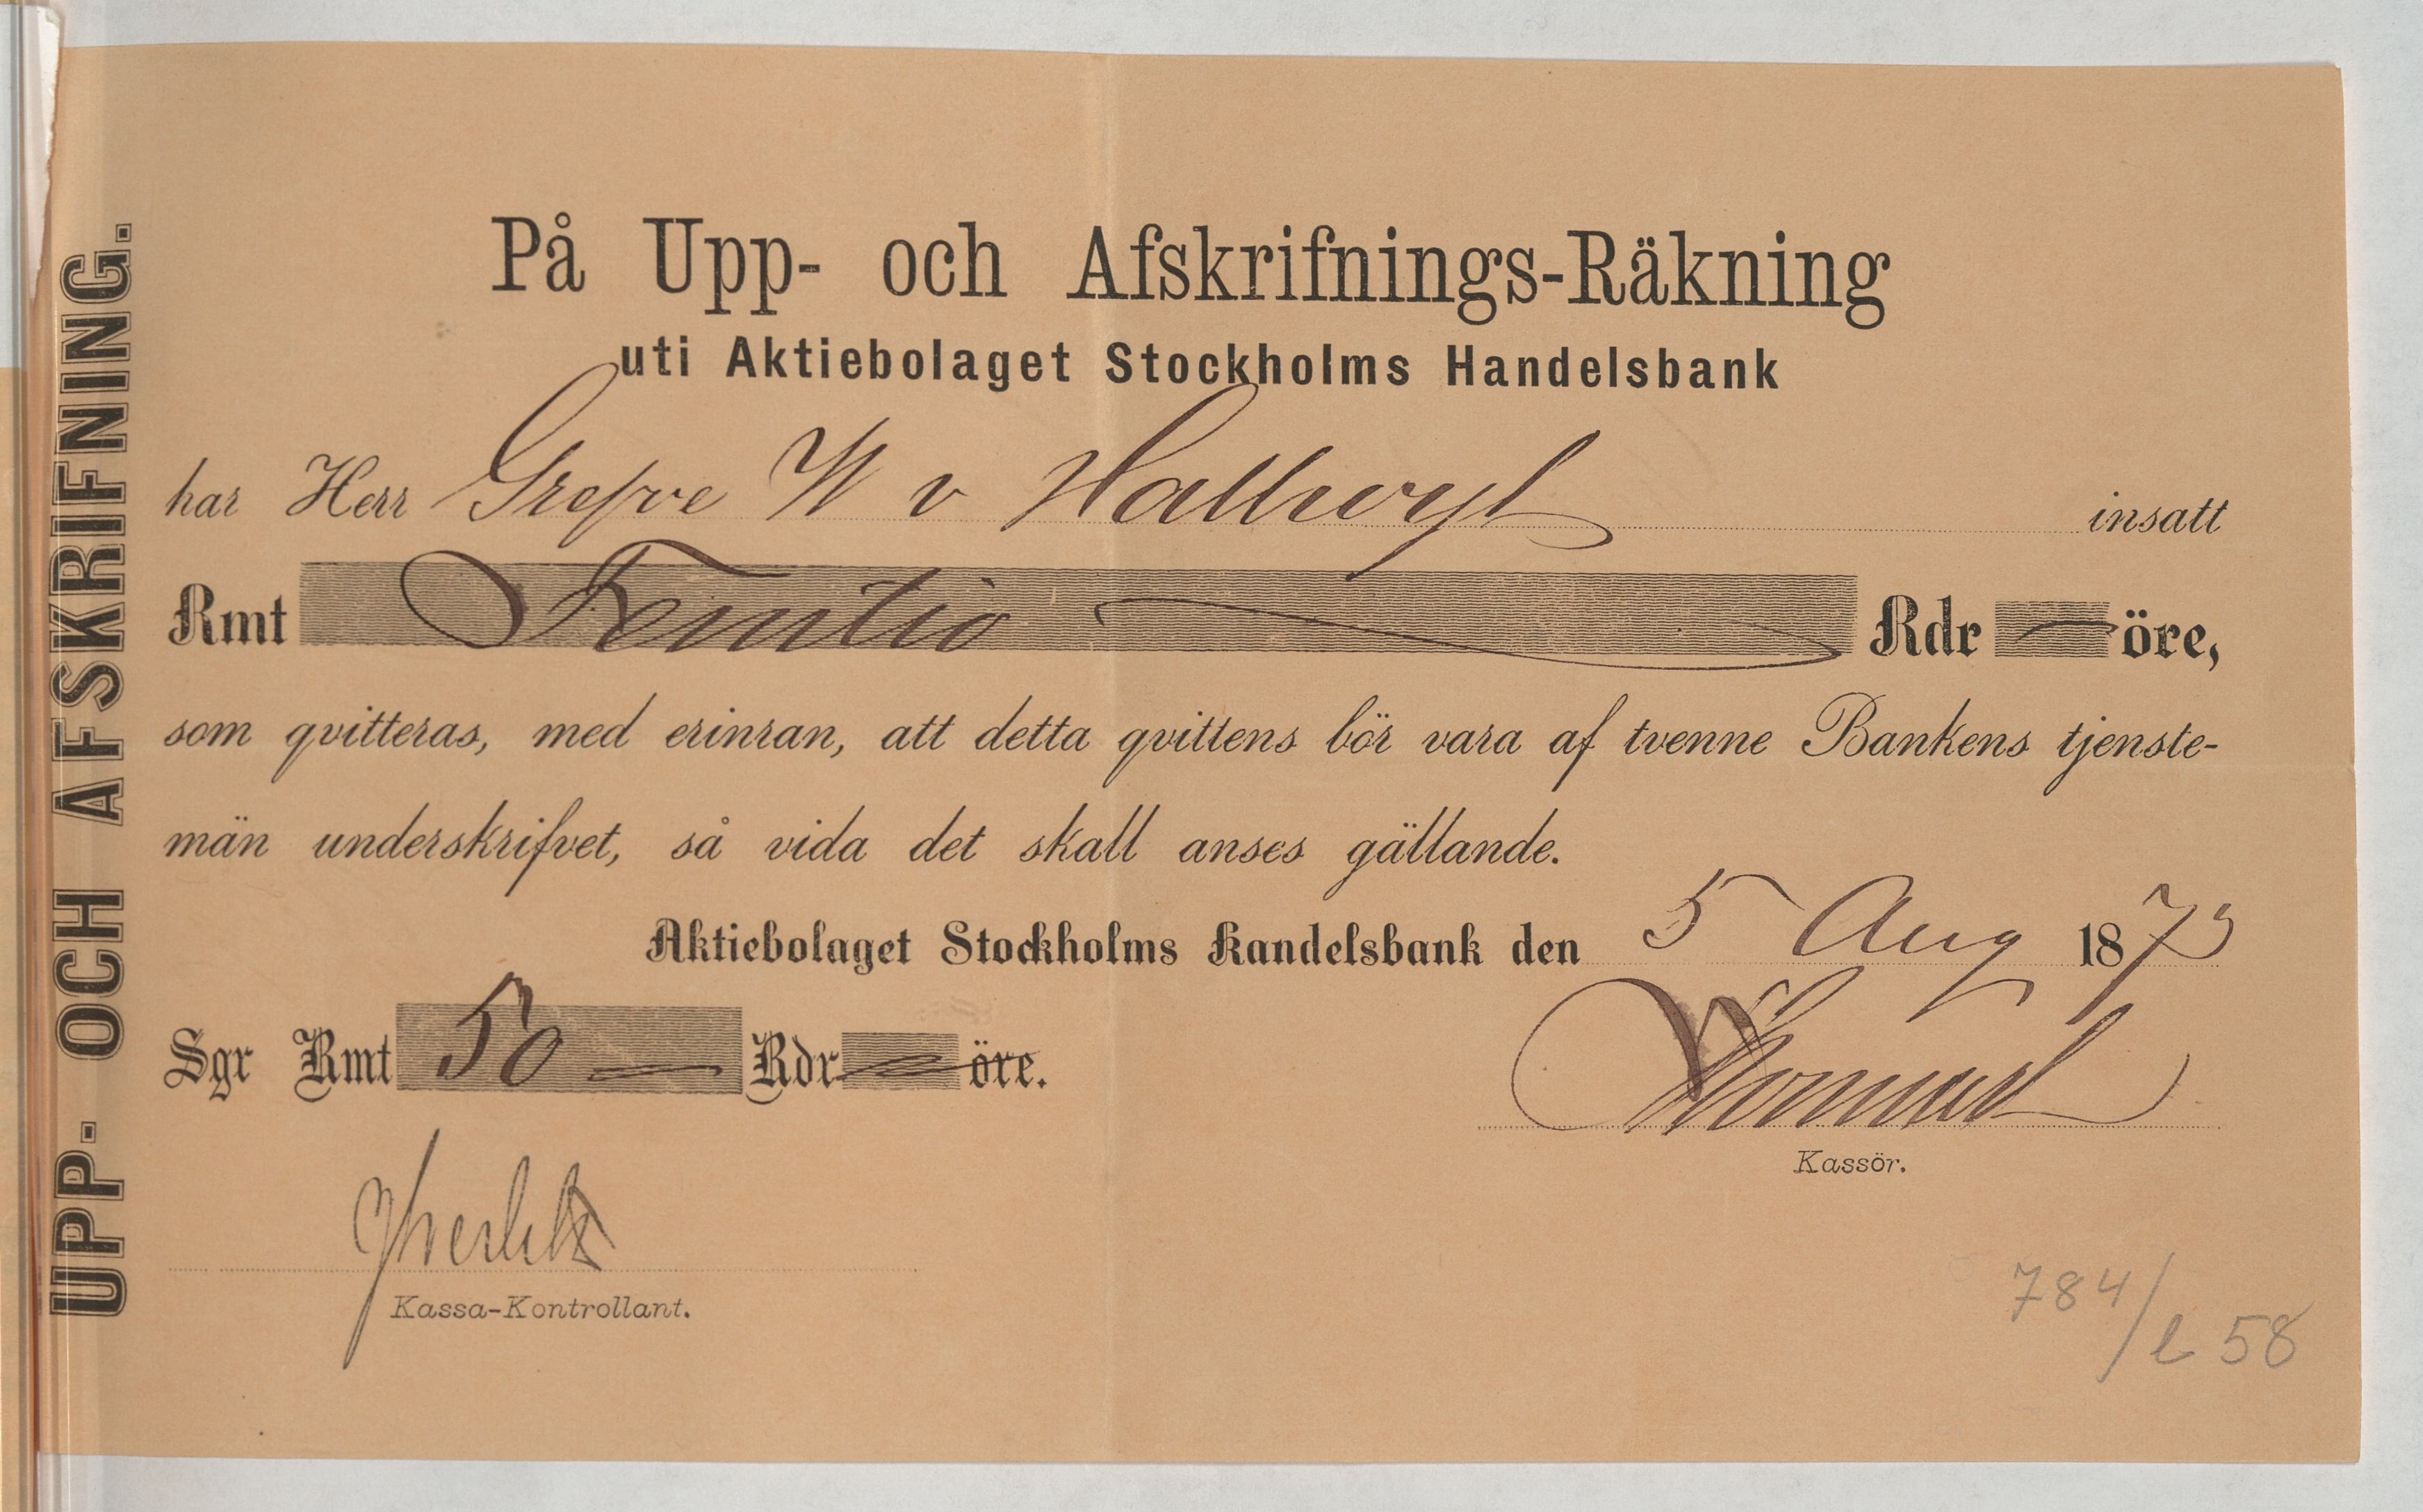 UPP- OCH AFSKRIFNING.
På Upp- och Afskrifnings-Räkning
uti Aktiebolaget Stockholms Handelsbank
har Herr Grefve W v Hallwyl insatt
Rmt Femtio Rdr — öre,
som qvitteras, med erinran, att detta qvittens bör vara af tvenne Bankens tjenste-
män underskrifvet, så vida det skall anses gällande.
Aktiebolaget Stockholms Handelsbank den 5 Aug 1873
Sgr Rmt 50 — Rdr — öre.
Kassör.
Kassa-Kontrollant.
784/b 58